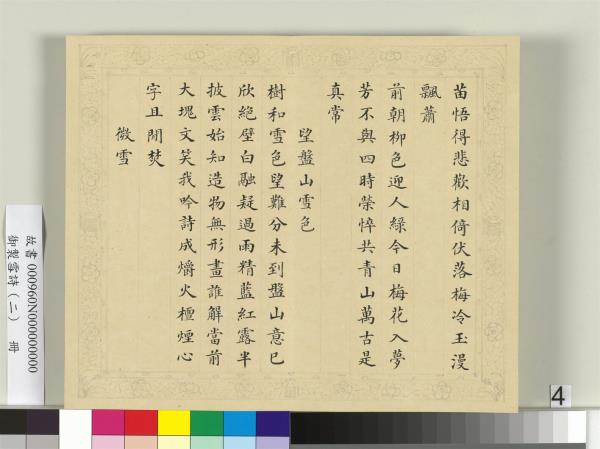 苗悟得悲歡相倚伏落梅冷玉漫
飄蕭
前朝柳色迎人綠今日梅花入夢
芳不與四時榮悴共青山萬古是
真常
望盤山雪色
樹和雪色望難分未到盤山意已
欣絕壁白融疑過雨精藍紅露半
披雲始知造物無形畫誰解當前
大塊文笑我吟詩成爝火檀煙心
字且閒焚
微雪
故書000960N000000000
御製雪詩（二） 冊
4